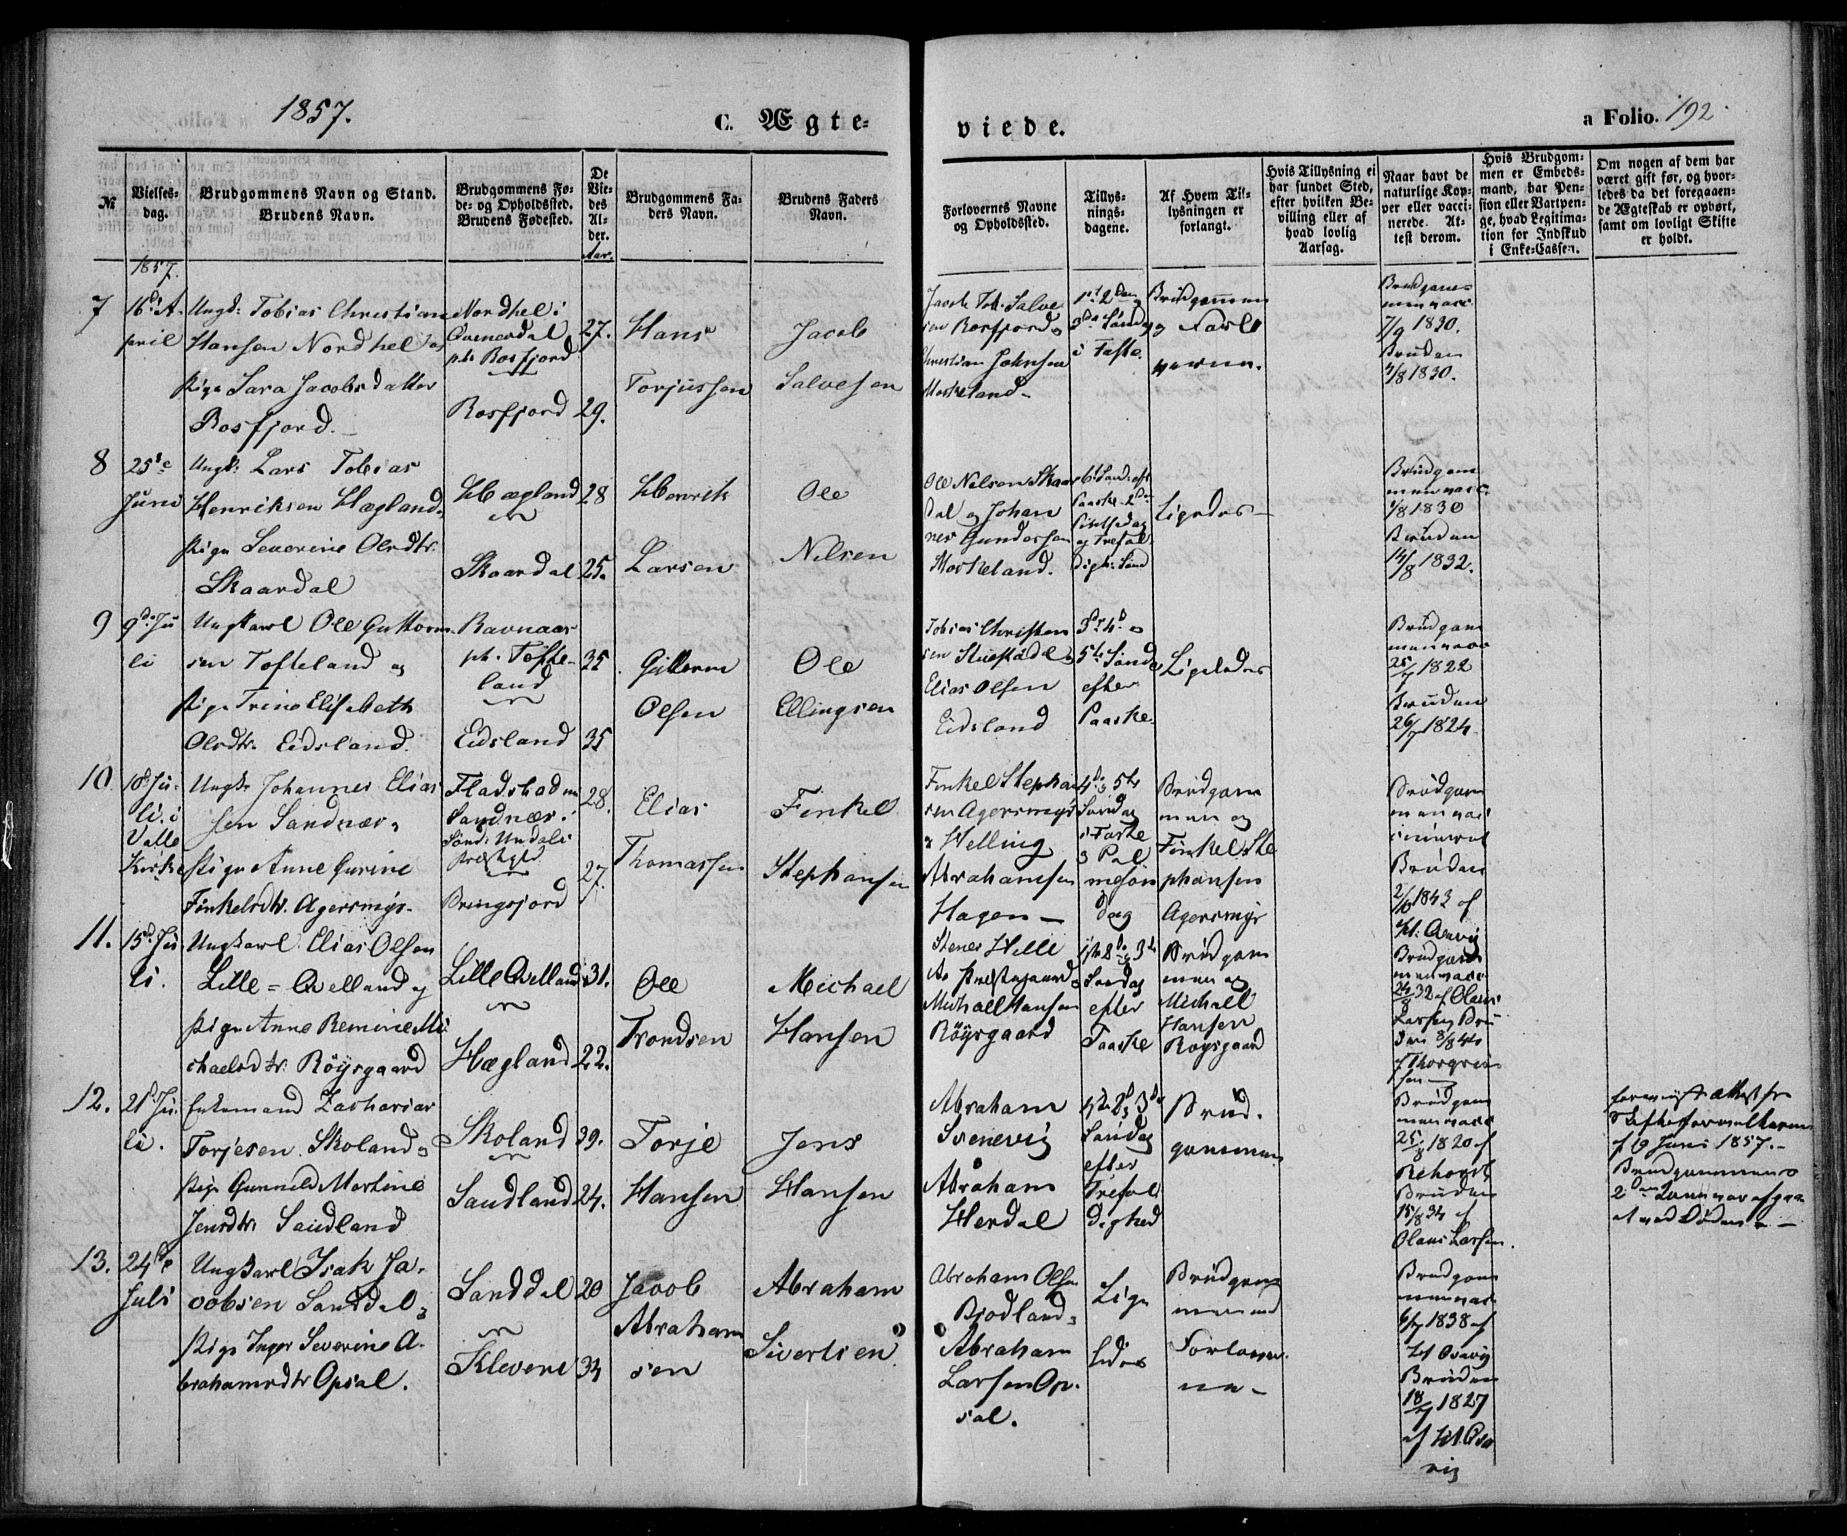 1857.
C. Ægte-
viede.
a Folio. 192
№
Vielses-
dag.
Brudgommens Navn og Stand.
Brudens Navn.
Brudgommens Fø-
de- og Opholdssted.
Brudens Fødested.
De
Vie-
des
Al-
der.
Aar.
Brudgommens Fa-
ders Navn.
Brudens Faders
Navn.
Forlovernes Navne
og Opholdssted.
Tillys-
nings-
dagene.
Af Hvem Til-
lysningen er
forlangt.
Hvis Tillysning ei
har fundet Sted,
efter hvilken Be-
villing eller af
hvad lovlig
Aarsag.
Naar havt de
naturlige Kop-
per eller vacci-
nerede. At-
test derom.
Hvis Brudgom-
men er Embeds-
mand, har Pen-
sion eller Vartpen-
ge, hvad Legitima-
tion for Indskud
i Enke-Cassen.
Om nogen af dem har
været gift før, og hvor-
ledes da det foregaaen-
de Ægteskab er ophørt,
samt om lovligt Skifte
er holdt.
1857.
7
16d A-
pril
Ungk: Tobias Christian
Hansen Nordhel og
Pige Sara Jacobsdatter
Rosfjord.
Nordhel i
Qvinesdal
pt. Rosfjord
Rosfjord
27.
29.
Hans
Torjussen
Jacob
Salvesen
Jacob Tob. Salve
sen Rosfjord
Christian Johnsen
Moskeland
1st 2den
3de Søndag
i Faste.
Brudgommen
og Forlo
verne.
Brudgom-
men vacc
7/9 1830.
Bruden
4/8 1830.
8
25de
Juni
Ungk: Lars Tobias
Henriksen Hægland
Pige Severine Olsdtr.
Skaardal
Hægland
Skaardal
28
25.
Henrik
Larsen
Ole
Nilsen
Ole Nilsen Skaar
dal og Johan
nes Gundersen
Moskeland.
6te Sønd. eft
Paaske 2den
Pintsedag
og Trefol
digh: Sønd
Ligeledes
Brudgom
men vacc.
1/8 1830
Bruden
14/8 1832.
9
9de Ju
li
Ungkarl Ole Guttorm
sen Tofteland og
Pige Trine Elisabeth
Olsdtr. Eidsland.
Ravnaas
pt. Tofte-
land
Eidsland
35
35
Guttorm
Olsen
Ole
Ellingsen
Tobias Christen
sen
Elias Olsen
Eidsland
3d 4d og
5te Sønda
efter
Paaske.
Ligeledes
Brudgom
men vacc
25/7 1822
Bruden
26/7 1824
10
10d Ju-
li i
Valle
Kirke
Ungk. Johannes Elias
sen Sandnær og
Pige Anne Gurine
Finkelsdtr. Agersmyr
Fladstad
Sandnær i
Sønd: Undals
Præstgld
Bringsjord
28.
27.
Elias
Thomassen
Finkel
Stephansen
Finkel Stephan
sen Agersmyr
Helling
Abrahamsen
Hagen
4de 5te
Søndag
i Faste
3 Pal
mesøn
dag
Brudgom
men og
Finkel Ste
phansen
Agersmyr
Brudgom
men vac
cineret
Bruden
2/6 1843 af
Kl: Qvavig
11.
15d Ju
li.
Ungkarl Elias Olsen
Lille=Qvelland og
Pige Anne Remine Mi
chaelsdtr. Röysgaard
Lille Qvelland
Hægland
31.
22.
Ole
Trondsen
Michael
Hansen
Stener Helle
Præstegaard
Michael Hansen
Röysgaard
1ste 2d 3de
Søndag
efter
Paaske
Brudgom
men og
Michael
Hansen
Roysgaard
Brudgom
men vacc
24/8 32 af Olaus
Larsen Bru
den 3/8 44
af Thorgrim
sen
12.
21d Ju
li.
Enkemand Zacharias
Torjesen Skoland og
Pige Gunnild Martine
Jensdtr Sandland
Skoland
Sandland
39.
24.
Torje
Hansen
Jens
Hansen
Abraham
Svenevig
Abraham
Herdal
1ste 2d 3de
Søndag
efter
Trefol
dighed
Brud-
gommen
Brudgom
men vacc
25/8 1820 af
Rehovit
Bruden
15/8 34 af
Olaus Larsen.
forevist Attest fra
Skifteforvalteren
af 9 Juni 1857.
Brudgommens
2den Kone var afgaa
et ved Døden.
13.
24de
Juli
Ungkarl Isak Ja-
cobsen Sanddal
Pige Inger Severine A-
brahamsdtr Opsal.
Sanddal
Kleveni
20
34
Jacob
Abraham
sen
Abraham
Sivertsen
Abraham Olsen
Brodland og
Abraham
Larsen Op-
sal.
Lige
ledes
Brudgom
men med
Forlover
ne
Brudgom
men vacc
6/7 1838 af
Kl Qvavig
Bruden
18/7 1827
af Kl. Qva
vig